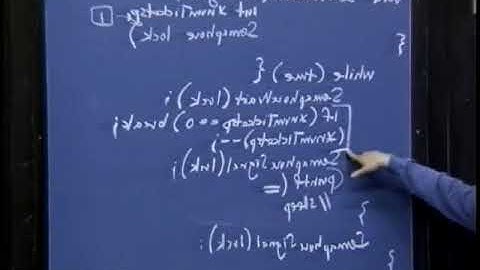 int *numTicketsp
1
Semaphore lock)
{
while (true) {
SemaphoreWait(lock);
if (*numTicketsp == 0) break;
(*numTicketsp)--;
SemaphoreSignal(lock);
printf(
\\sleep
}
SemaphoreSignal(lock);
}